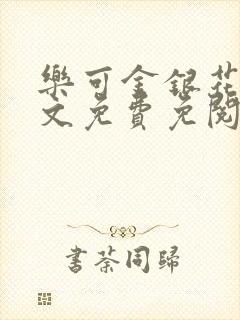 樂可金銀花
文免費免閱
書荼同歸